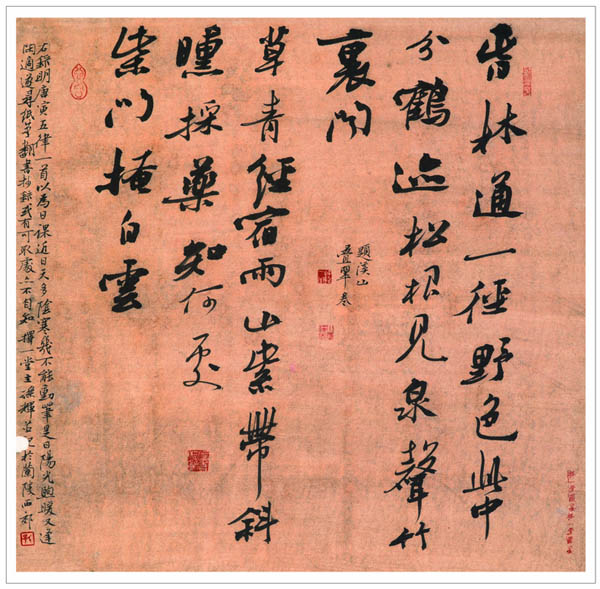 香林通一徑野色此中
分鶴迹松根見泉聲竹
裏聞
題溪山
疊翠卷
草青經宿雨山紫帶斜
曛採藥知何处
柴門掩白雲
右録明唐寅五律一首以為日課近日天多陰寒幾不能動筆是日陽光煦暖又逢
閑適遂尋紙筆翻書抄録或有可取處亦不自知擇一堂主梁輝并記於蘭陵西郊